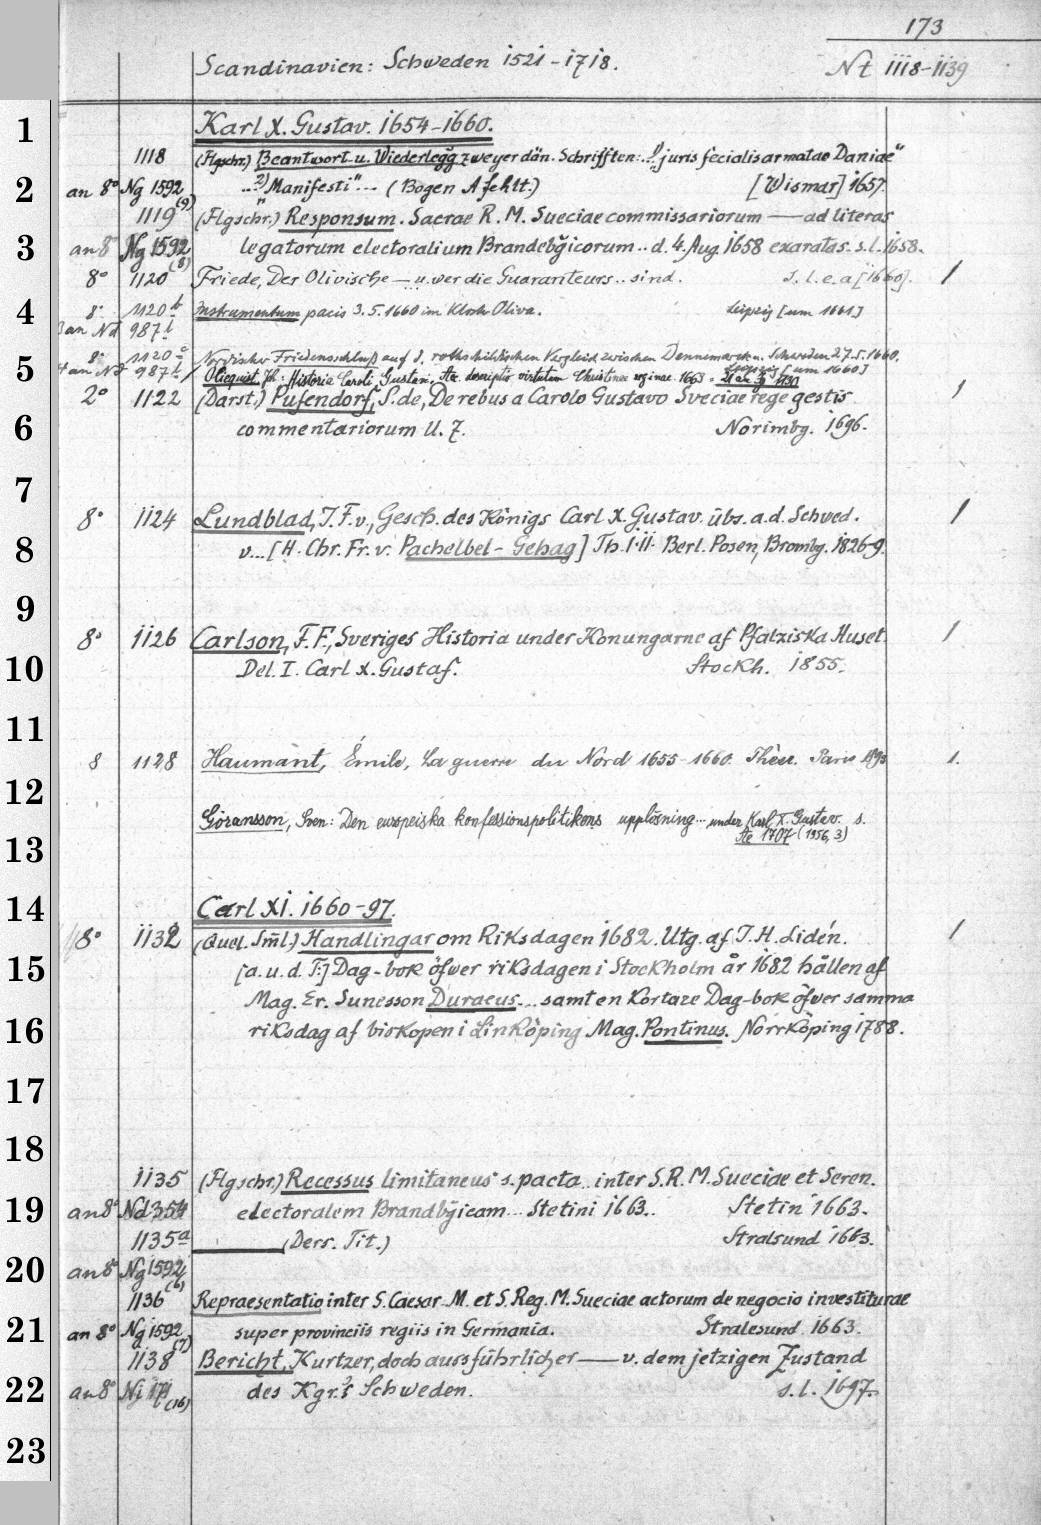 173
Scandinavien: Schweden 1521-1718.
Nt 1118-1139
1
Karl X. Gustav. 1654-1660.
1118 (Flgschr.) Beantwort. u. Wiederlegg zweyer dän. Schrifften: 1) „juris fecialis armatae Daniae“
2 an 8° Ng 1592 (9) ... 2) „Manifesti“ ... (Bogen A fehlt.) [Wismar] 1657.
1119 (Flgschr.) Responsum. Sacrae R. M. Sueciae commissariorum — ad literas
3 an 8° Ng 1592 (8) legatorum electoralium Brandebgicorum .. d. 4. Aug. 1658 exaratas. s. l. 1658.
8° 1120 Friede, Der Olivische — u. wer die Guaranteurs .. sind. s. l. e. a [1660]. 1
4 8° 1120 b Instrumentum pacis 3.5.1660 im Kloster Oliva. Leipzig [um 1661]
an Nd 987 t
5 8° 1120 c Nordischer Friedensschluß auf d. rothschildschen Vergleich zwischen Dennemarck u. Schweden 27.5.1660.
an Nd 987 t Leipzig [um 1660]
Olicquist, Jh.: Historia Caroli Gustavi. Ac descriptio virtutum Christinae reginae. 1663
2° 1122 (Darst.) Pufendorf, S. de, De rebus a Carolo Gustavo Sveciae rege gestis 1
6 commentariorum ll. 7. Norimbg. 1696.
7
8° 1124 Lundblad, J. F. v., Gesch. des Königs Carl X. Gustav. übs. a. d. Schwed. 1
8 v... [H. Chr. Fr. v. Pachelbel-Gehag] Th. I. II. Berl. Posen, Brombg. 1826-9.
9
8° 1126 Carlson, F. F., Sveriges Historia under Konungarne af Pfalziska Huset. 1
10 Del. I. Carl X. Gustaf. Stockh. 1855.
11
8 1128 Haumant, Émile, La guerre du Nord 1655-1660. Thèse. Paris 1893 1.
12
Göransson, Sven: Den europeiska konfessionspolitikens upplösning... under Karl X. Gustav. s.
13 Ac 1707 (1956, 3)
14 Carl XI. 1660-97.
8° 1132 (Quel. Sml.) Handlingar om Riksdagen 1682. Utg. af J. H. Lidén. 1
15 [a. u. d. T:] Dag-bok öfwer riksdagen i Stockholm år 1682 hållen af
Mag. Er. Sunesson Duraeus... samt en kortare Dag-bok öfwer samma
16 riksdag af biskopen i Linköping Mag. Pontinus. Norrköping 1788.
17
18
1135 (Flgschr.) Recessus limitaneus s. pacta .. inter S. R. M. Sueciae et Seren.
19 an 8° Nd 354 electoralem Brandbgicam... Stetini 1663.. Stetin 1663.
1135 a ——— (Ders. Tit.) Stralsund 1663.
20 an 8° Ng 1592 (6)
1136 Repraesentatio inter S. Caesar. M. et S. Reg. M. Sueciae actorum de negocio investiturae
21 an 8° Ng 1592 (7) super provinciis regiis in Germania. Stralesund. 1663.
1138 Bericht, Kurtzer, doch aussführlicher — v. dem jetzigen Zustand
22 an 8° (16) des Kgr.'s Schweden. s. l. 1697.
23